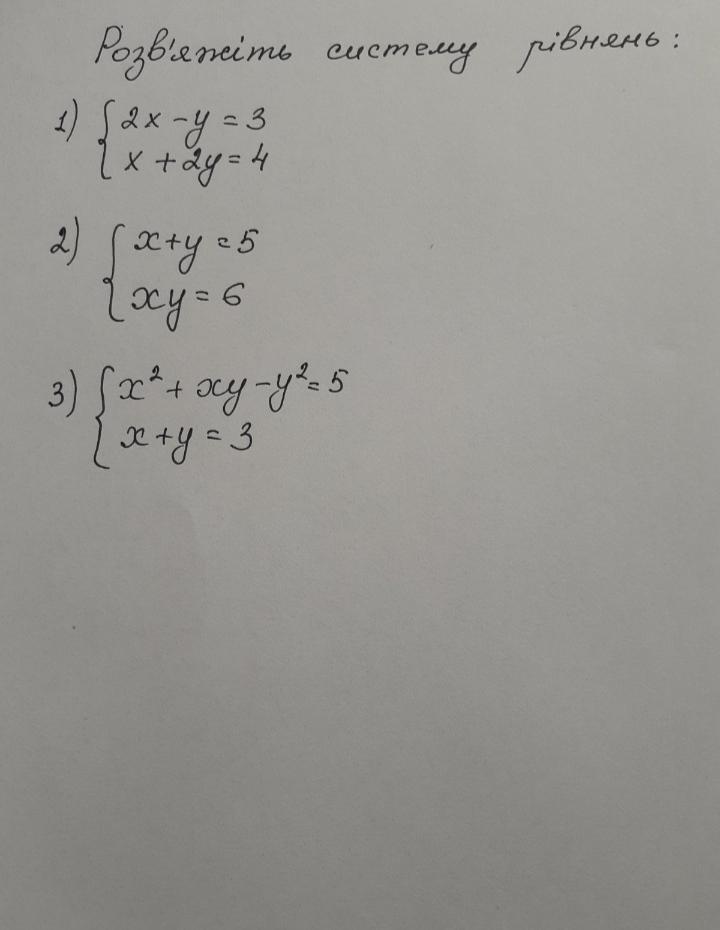 Розв'яжіть систему рівнянь:
1) { 2x - y = 3
x + 2y = 4
2) { x + y = 5
xy = 6
3) { x² + xy - y² = 5
x + y = 3